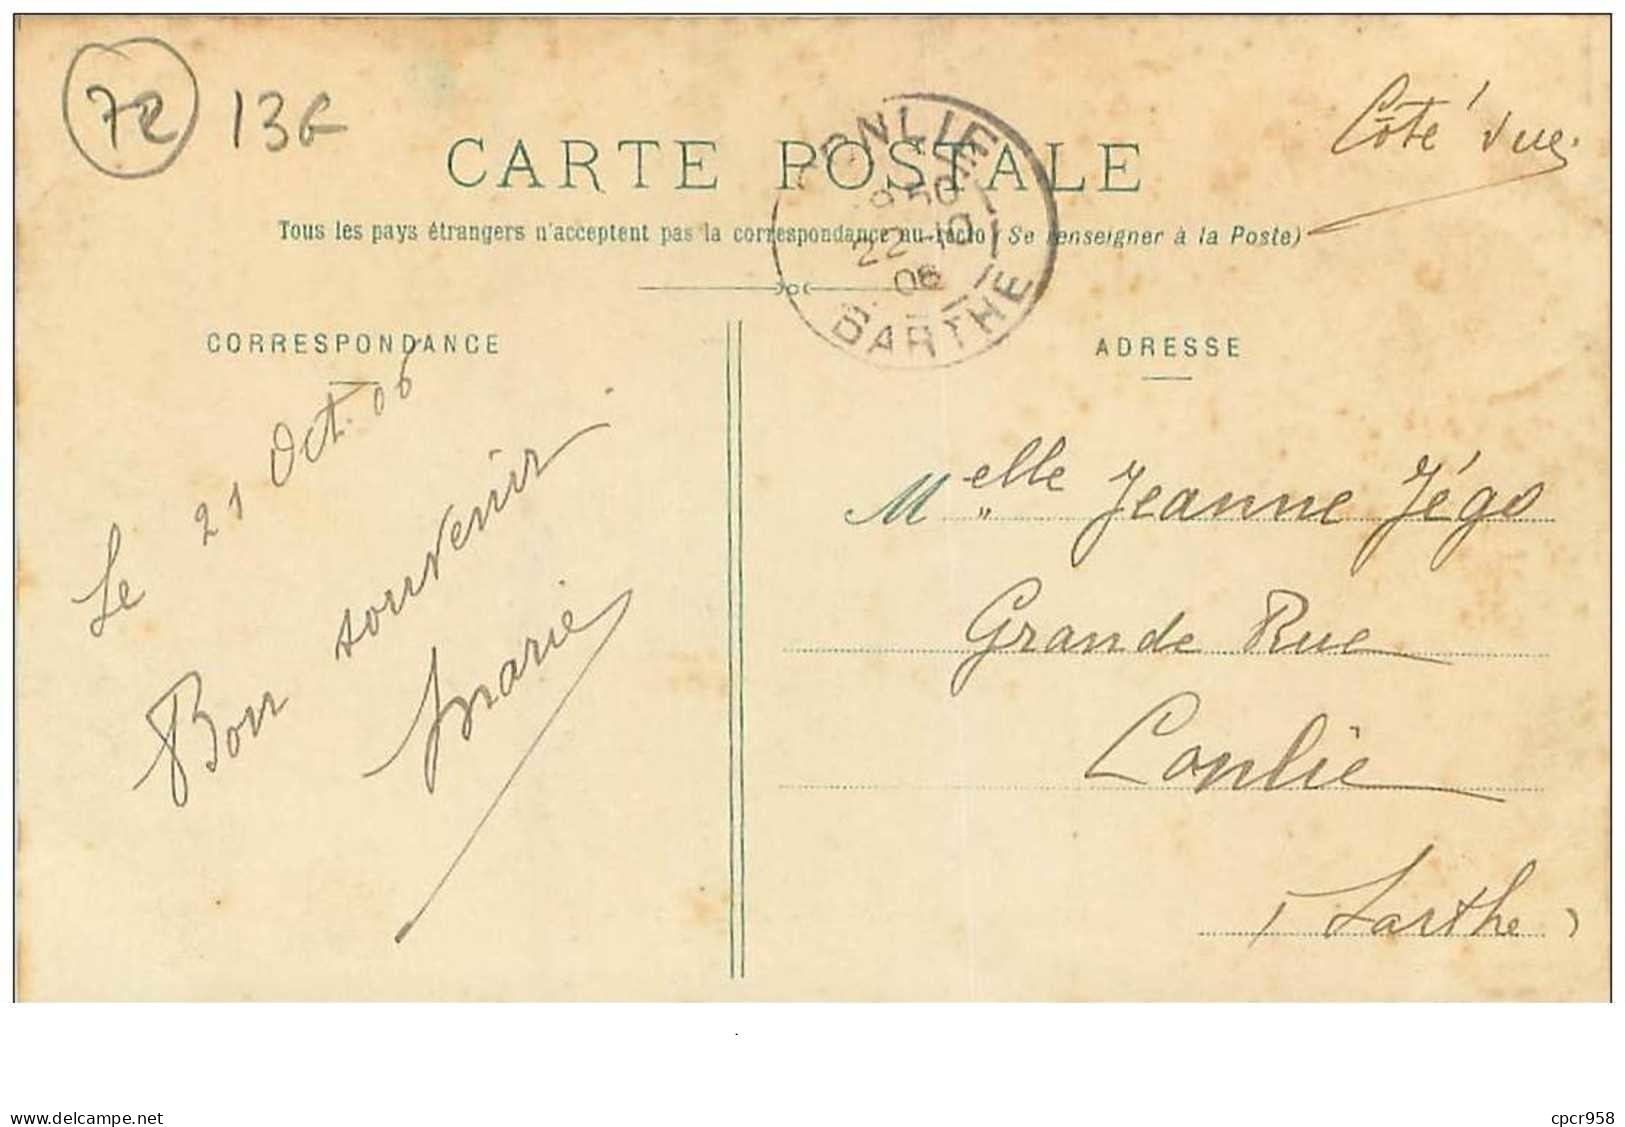 72 13€
Côté vue
CARTE POSTALE
Tous les pays étrangers n'acceptent pas la correspondance au recto (Se renseigner à la Poste)
CONLIE
22-10
06
SARTHE
CORRESPONDANCE
Le 21 Oct. 06
Bon souvenir
Marie
ADRESSE
Melle Jeanne Jégo
Grande Rue
Conlie
(Sarthe)
www.delcampe.net
cpcr958